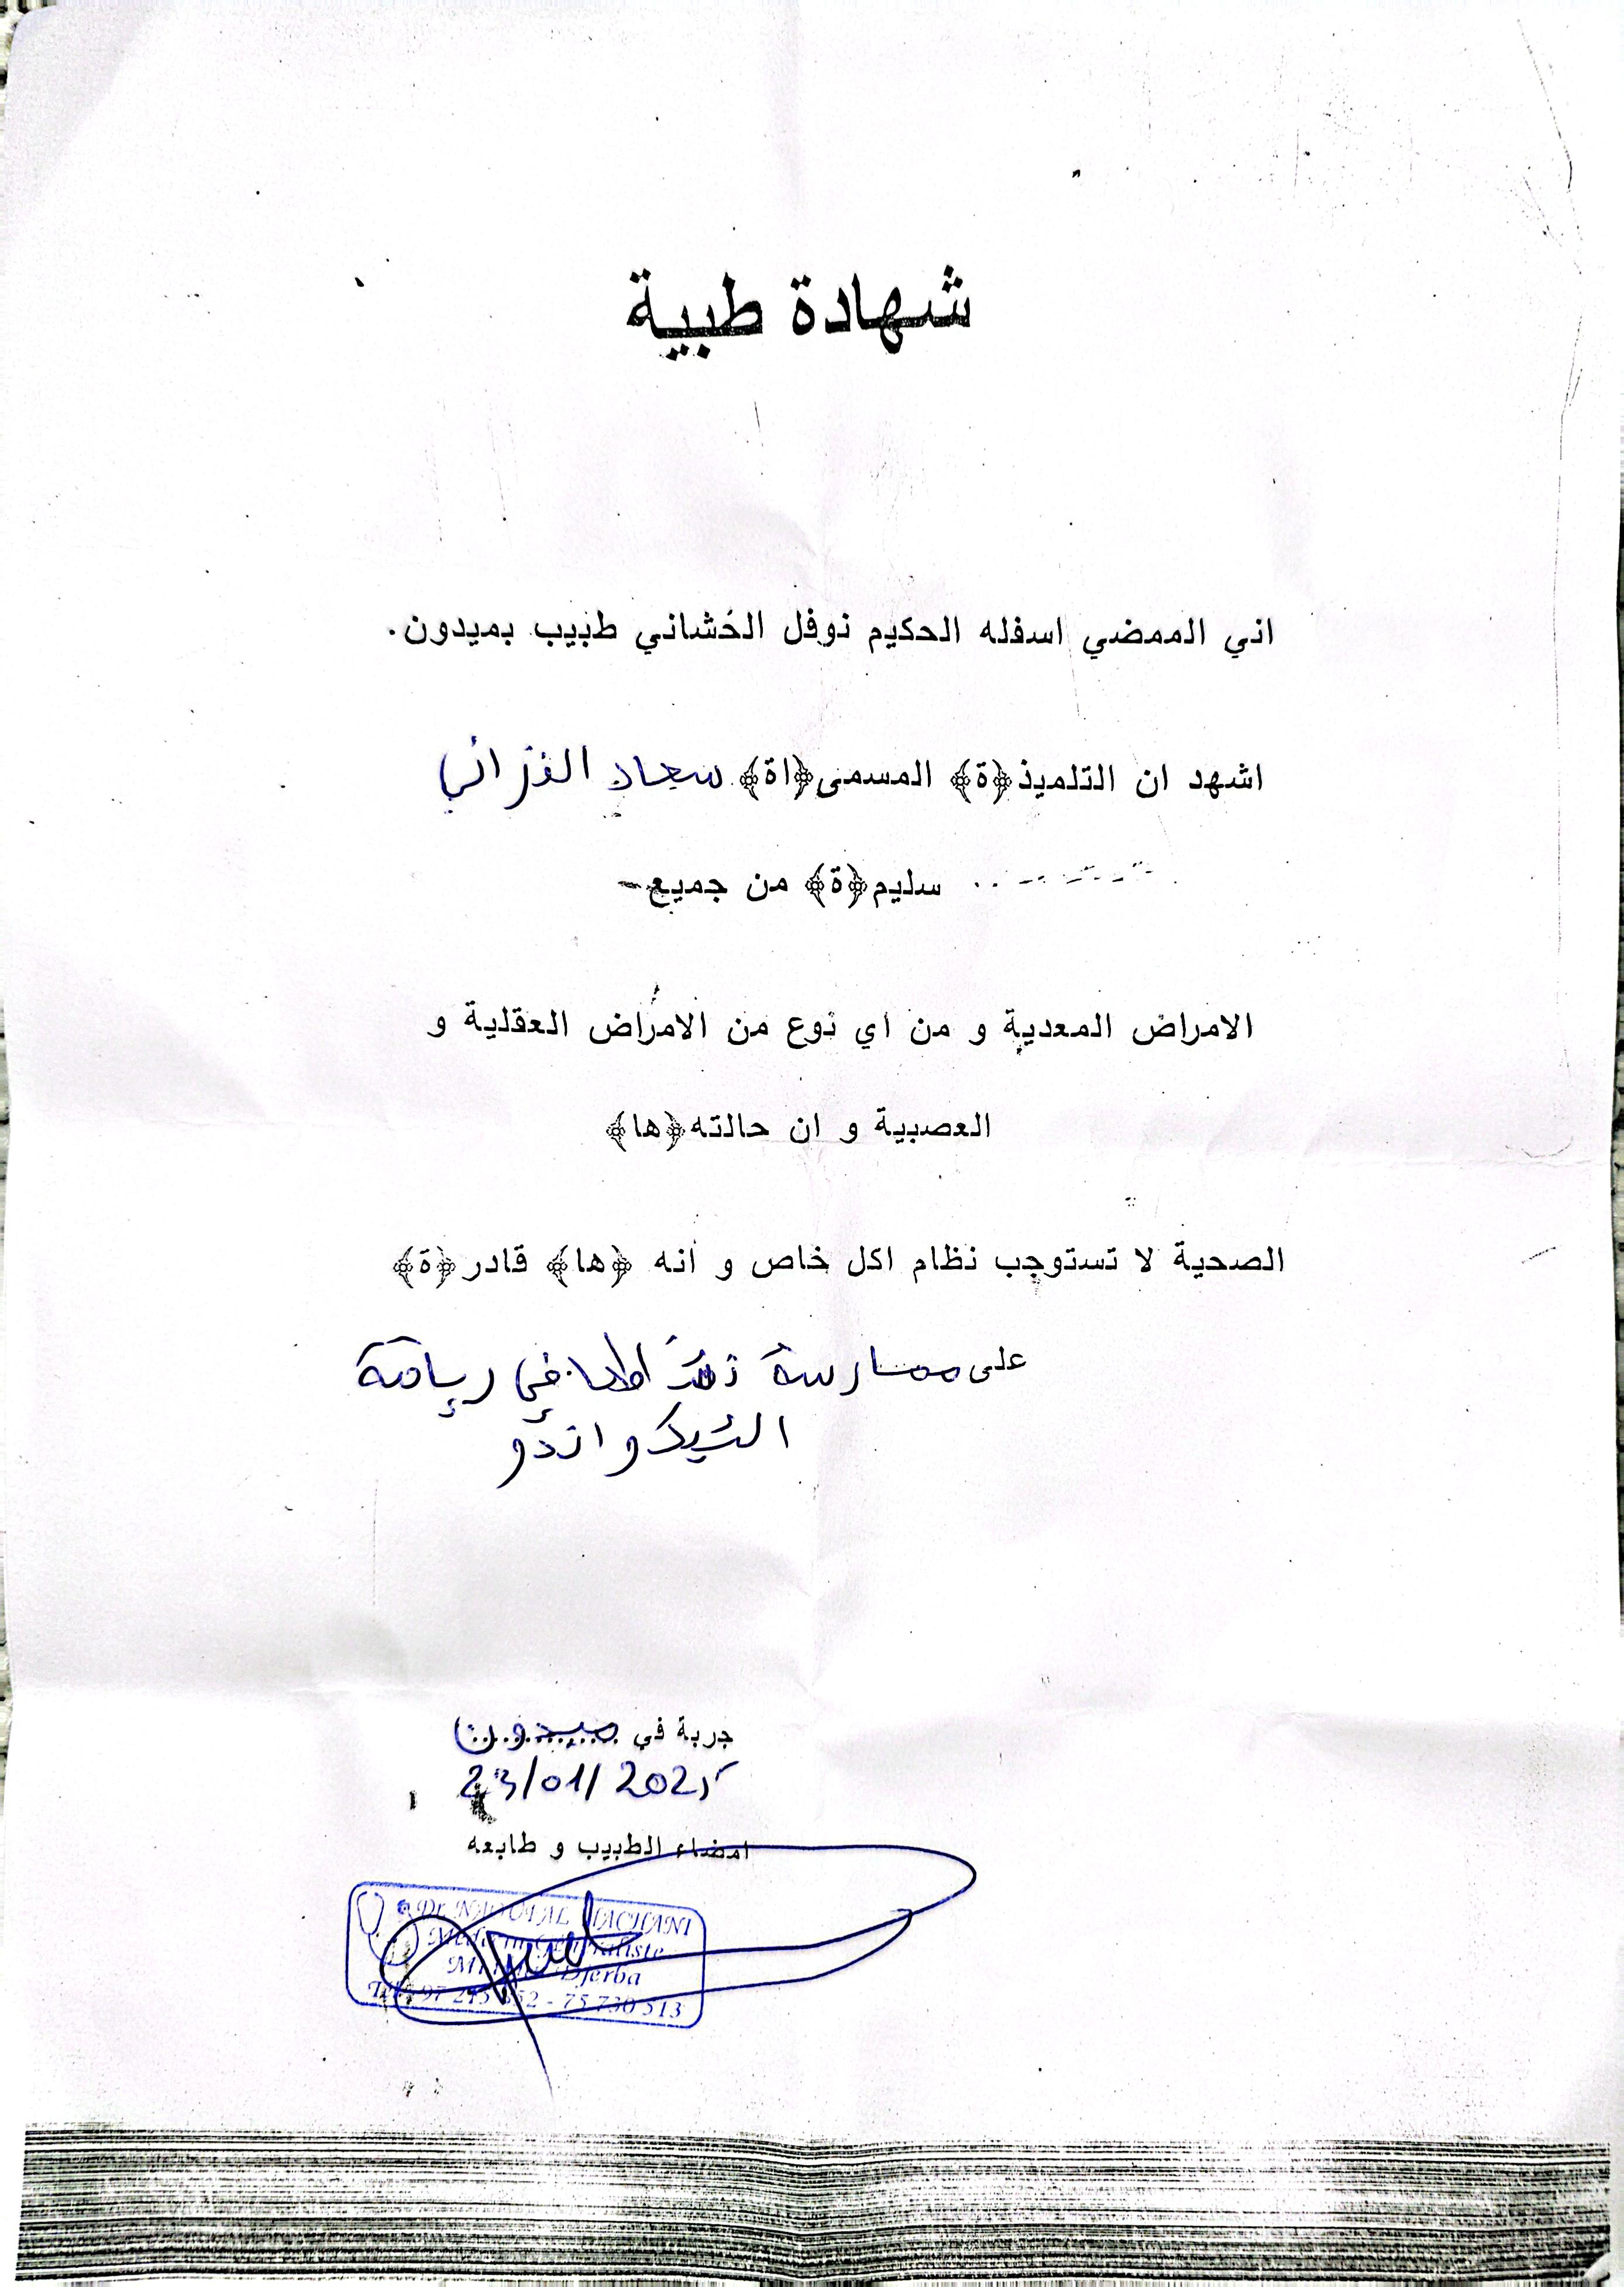 شهادة طبية
اني الممضي اسفله الحكيم نوفل الحشاني طبيب بميدون.
اشهد ان التلميذ﴿ة﴾ المسمى﴿اة﴾ سعاد الفزاني
سليم﴿ة﴾ من جميع
الامراض المعدية و من اي نوع من الامراض العقلية و
العصبية و ان حالته﴿ها﴾
الصحية لا تستوجب نظام اكل خاص و انه ﴿ها﴾ قادر﴿ة﴾
على ممارسة نشاطها في رياضة
التيكواندو
جربة في ميدون
23/01/2025
امضاء الطبيب و طابعه
Dr. NAOUFAL HACHANI
Médecin Généraliste
Midoun Djerba
Tél: 97 - 75 730 513